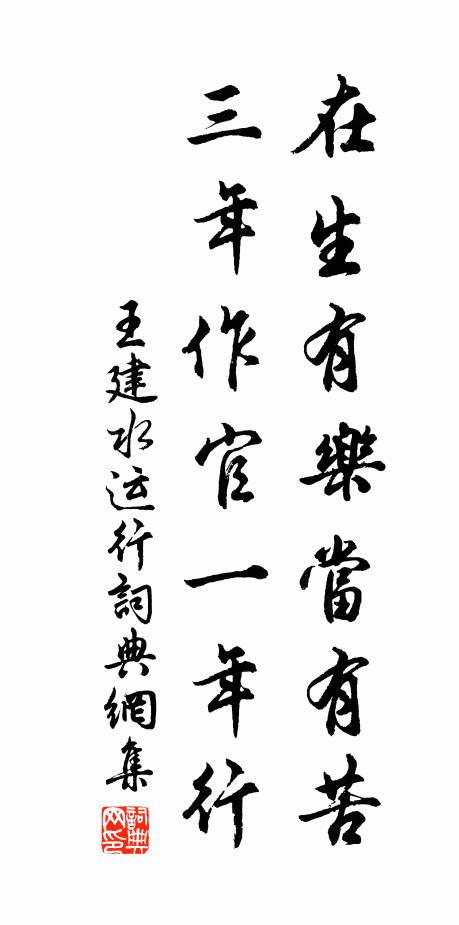 在生有樂當有苦
三年作官一年行
王建水运行詞典網集
詞典网印